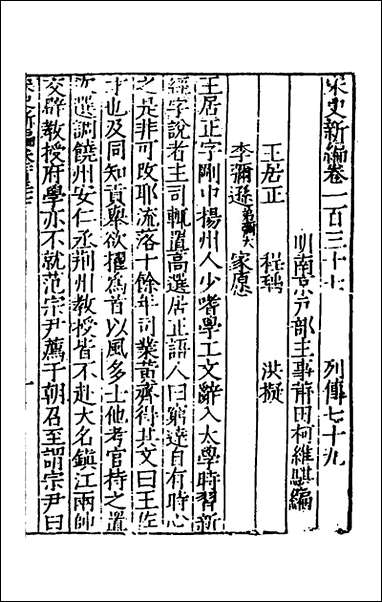 宋史新編卷一百三十七　列傳七十九
明南京户部主事莆田柯維騏編
王居正　程瑀　洪擬
李彌遜弟彌大　家愿
王居正字剛中揚州人少嗜學工文辭入太學時習新
經字說者主司輒置高選居正語人曰窮達自有時心
之是非可改耶流落十餘年司業黃齊得其文曰王佐
才也及同知貢舉欲擢爲首以風多士他考官持之置
次選調饒州安仁丞荆州教授皆不赴大名鎮江兩帥
交辟教授府學亦不就范宗尹薦于朝召至謂宗尹曰
宋史新編卷
一